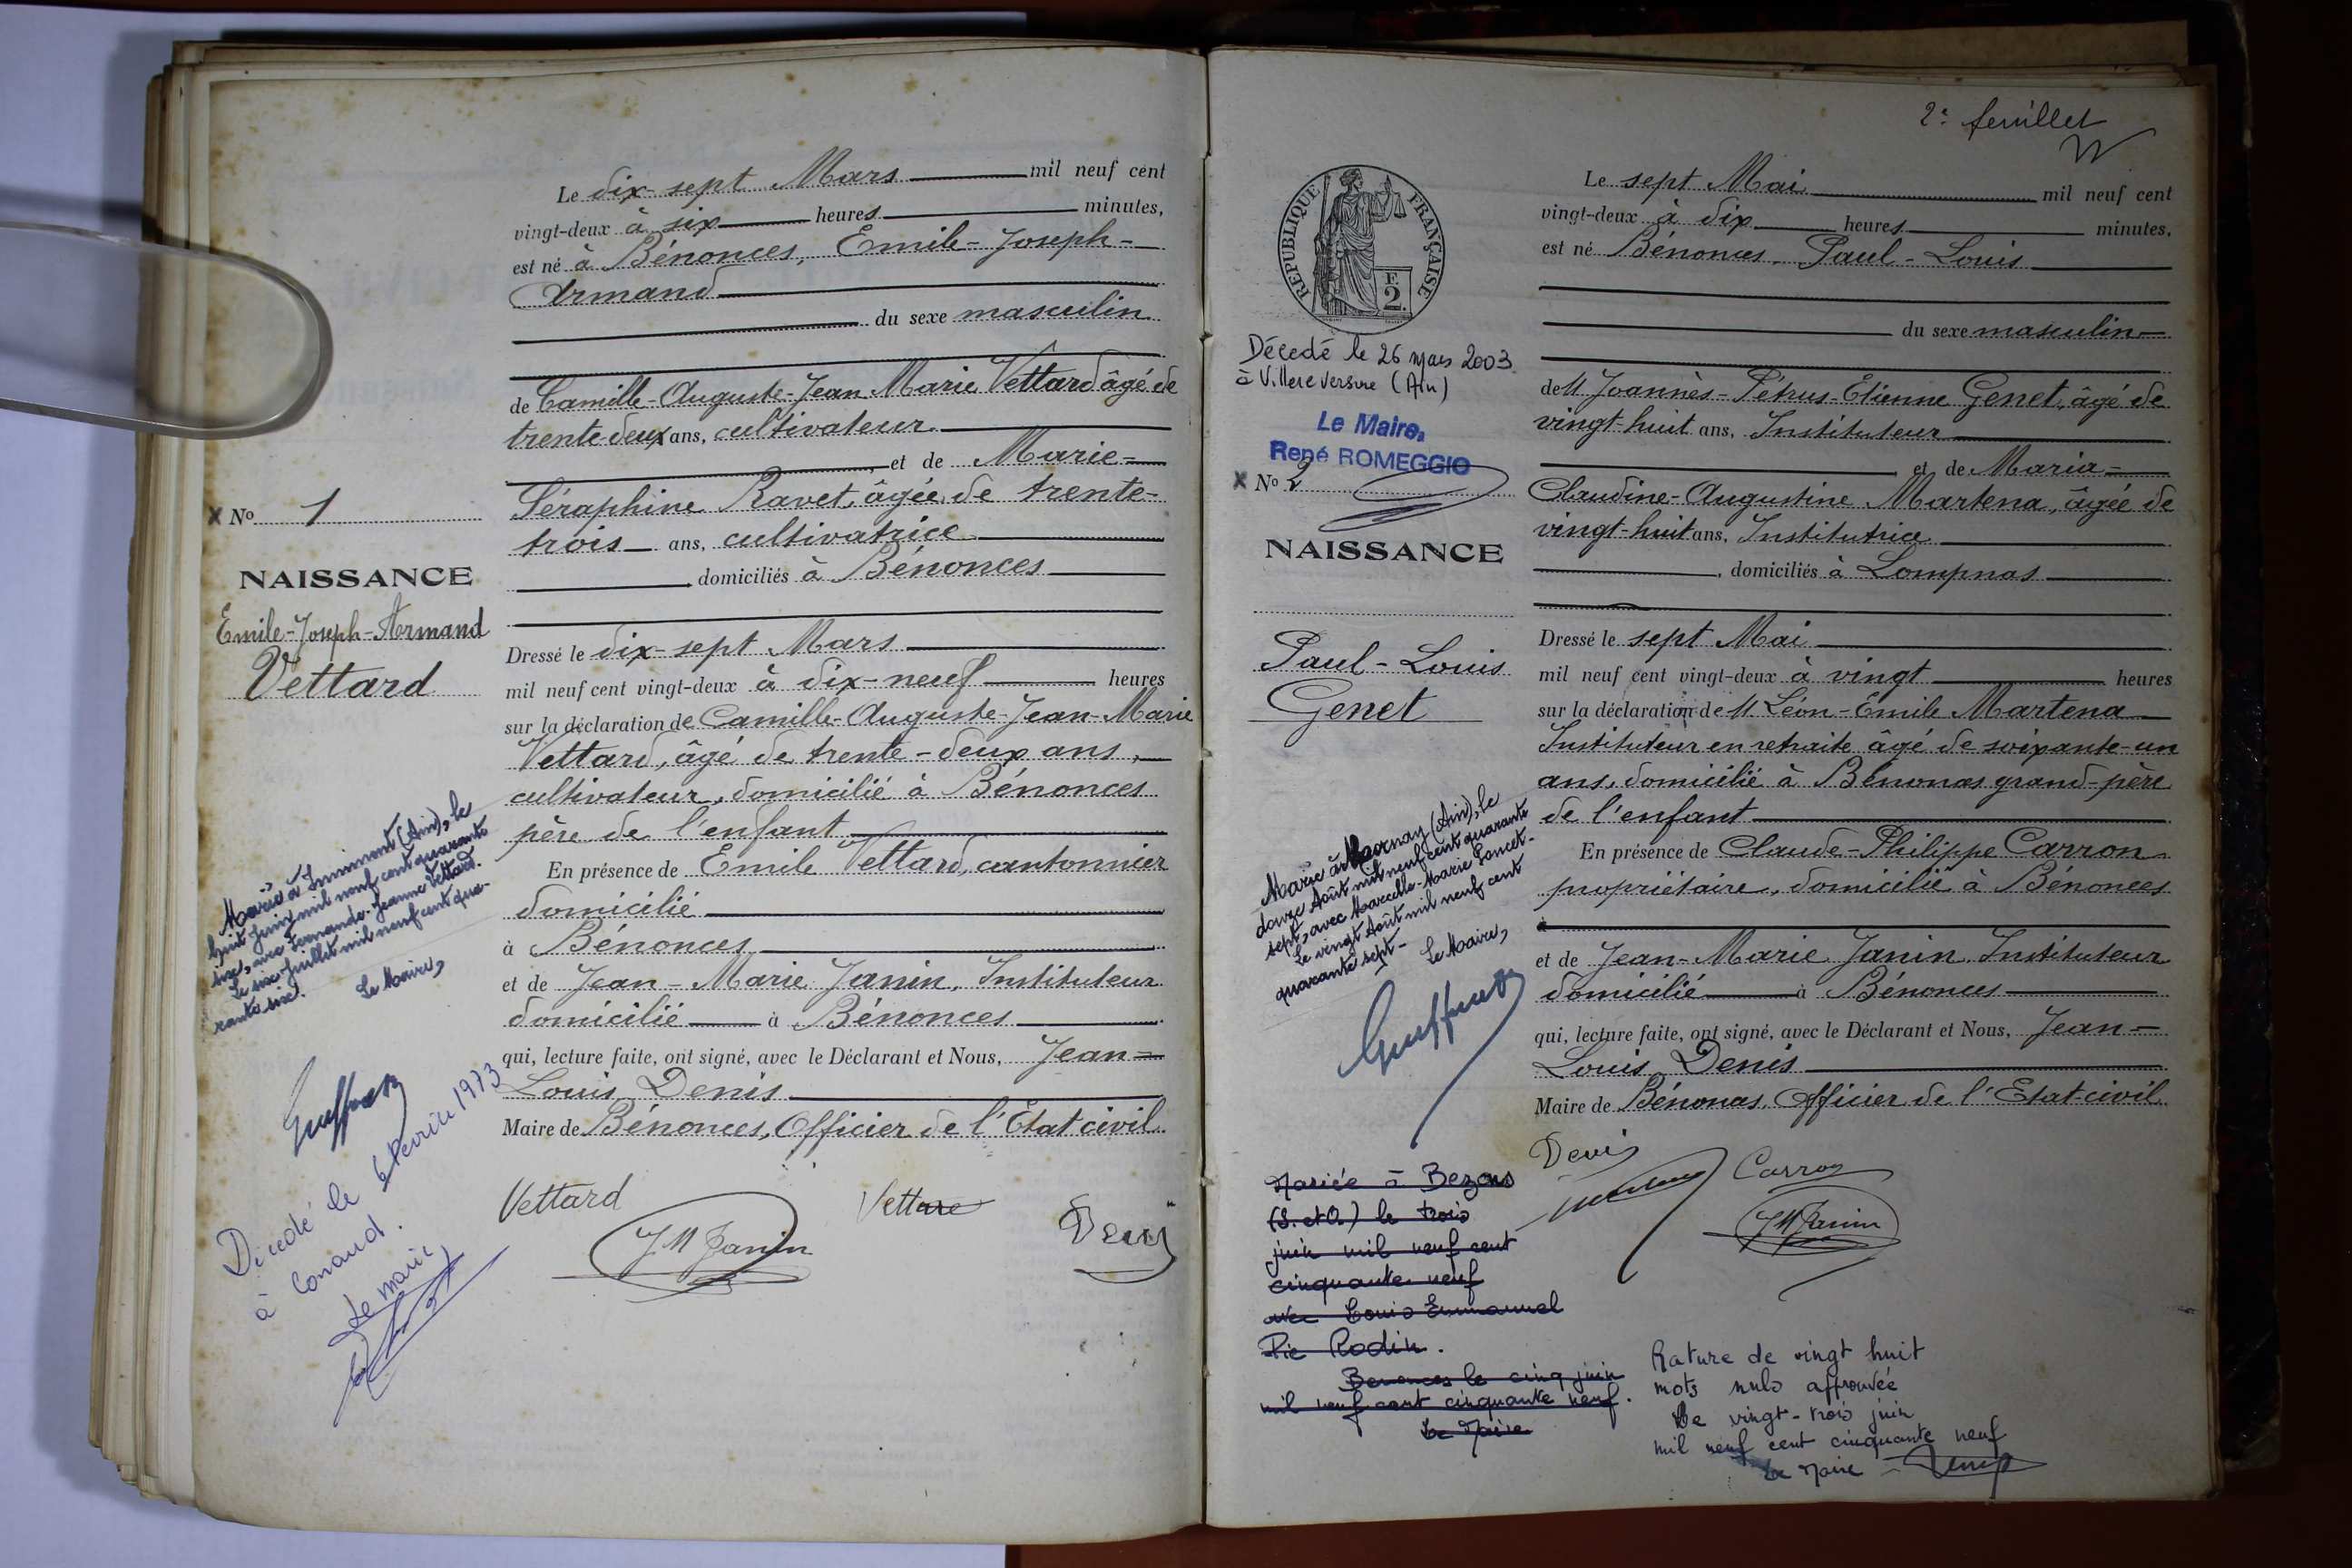 Le dix-sept Mars mil neuf cent
vingt-deux à six heures minutes,
est né à Bénonces, Emile-Joseph-
Armand
du sexe masculin
de Camille-Auguste-Jean Marie Vettard âgé de
trente-deux ans, cultivateur
, et de Marie-
Séraphine Ravet, âgée de trente-
trois ans, cultivatrice
, domiciliés à Bénonces
Dressé le dix-sept Mars
mil neuf cent vingt-deux à dix-neuf heures
sur la déclaration de Camille-Auguste-Jean-Marie
Vettard, âgé de trente-deux ans,
cultivateur, domicilié à Bénonces
père de l'enfant
En présence de Emile Vettard, cantonnier
domicilié
à Bénonces
et de Jean-Marie Janin, Instituteur
domicilié à Bénonces
qui, lecture faite, ont signé, avec le Déclarant et Nous, Jean-
Louis Denis
Maire de Bénonces, Officier de l'Etat civil
Vettard
Vettard
JM Janin
Denis
X No 1
NAISSANCE
Emile-Joseph-Armand
Vettard
Marié à Innimont (Ain), le
huit Juin mil neuf cent quarante
six, avec Fernande-Jeanne Vettard.
Le six Juillet mil neuf cent qua-
rante six.
Le Maire,
Décédé le 6 Février 1973
à Conand.
Le maire,
2e feuillet
RÉPUBLIQUE FRANÇAISE
F.
2.
Décédé le 26 mars 2003
à Villereversure (Ain)
Le Maire,
René ROMEGGIO
X No 2
NAISSANCE
Paul-Louis
Genet
Marié à (Ain), le
douze Août mil neuf cent quarante
sept, avec Marcelle-Marie
Le vingt Août mil neuf cent
quarante sept-
Le Maire,
Mariée à Bezons
(S. et O.) le trois
juin mil neuf cent
cinquante neuf
avec Louis Emmanuel
Pie Rodin.
Benonces le cinq juin
mil neuf cent cinquante neuf.
Le Maire
Le sept Mai mil neuf cent
vingt-deux à dix heures minutes,
est né Bénonces, Paul-Louis
du sexe masculin
de M Joannès-Pétrus-Etienne Genet, âgé de
vingt-huit ans, Instituteur
et de Maria-
Claudine-Augustine Martena, âgée de
vingt-huit ans, Institutrice
, domiciliés à Lompnas
Dressé le sept Mai
mil neuf cent vingt-deux à vingt heures
sur la déclaration de M Léon-Emile Martena
Instituteur en retraite âgé de soixante-un
ans, domicilié à Bénonces grand-père
de l'enfant
En présence de Claude-Philippe Carron
propriétaire, domicilié à Bénonces
à
et de Jean-Marie Janin Instituteur
domicilié à Bénonces
qui, lecture faite, ont signé, avec le Déclarant et Nous, Jean-
Louis Denis
Maire de Bénonces, Officier de l'Etat-civil
Denis
Carron
JM Janin
Rature de vingt huit
mots nuls approuvée
Le vingt-trois juin
mil neuf cent cinquante neuf
Le Maire